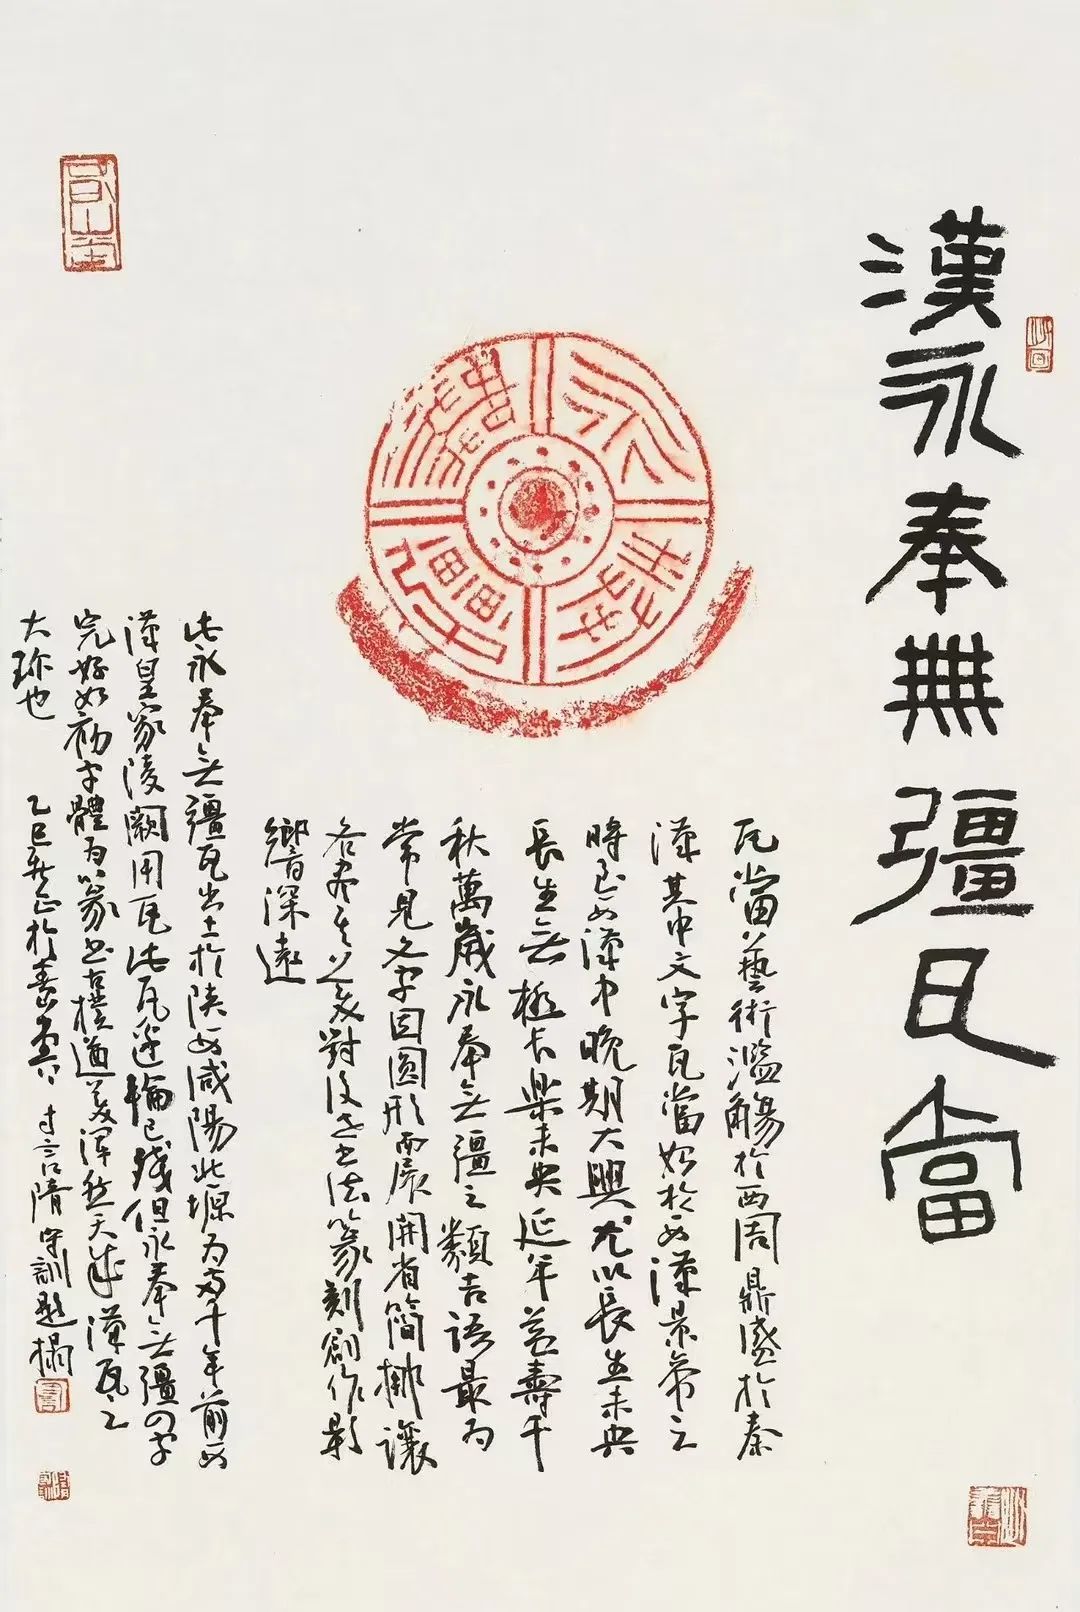 漢永奉無疆瓦當
瓦當藝術濫觴於西周鼎盛於秦
漢其中文字瓦當始於西漢景帝之
時至西漢中晚期大興尤以長生未央
長生無極長樂未央延年益壽千
秋萬歲永奉無疆之類吉語最為
常見文字因圓形而展開省簡挪讓
各盡其美對後世書法篆刻創作影
響深遠
此永奉無疆瓦出土於陝西咸陽北塬為兩千年前西
漢皇家陵闕用瓦此瓦邊輪已殘但永奉無疆四字
完好如初字體為篆書古樸遒美渾然天成漢瓦之
大珍也
乙巳 於 寸言 隋守訓題搨
永
奉
無
疆